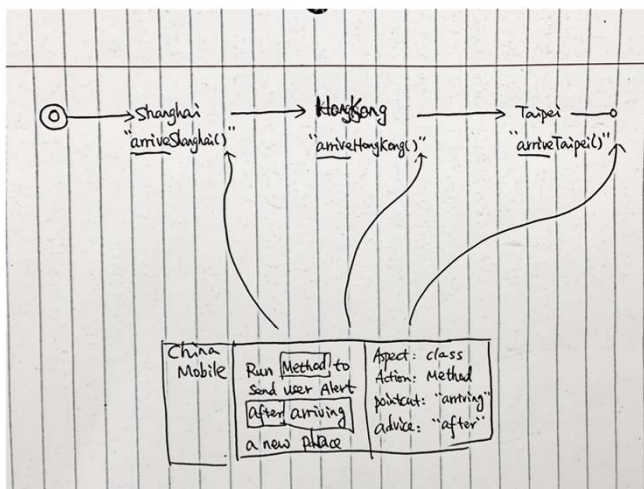 Shanghai
HongKong
Taipei
"arriveShanghai()"
"arriveHongKong()"
"arriveTaipei()"
China
Mobile
Run Method to
send user Alert
after arriving
a new place
Aspect: class
Action: Method
pointcut: "arriving"
advice: "after"